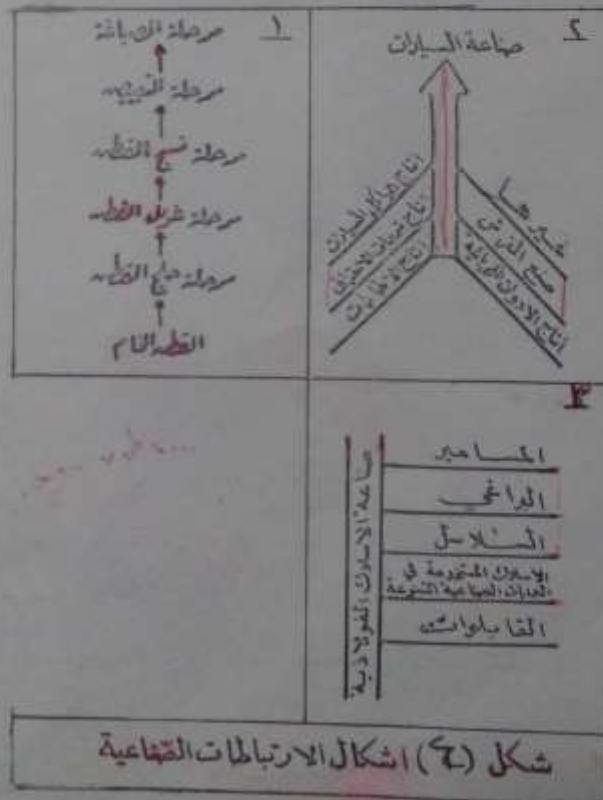 ١
مرحلة الدباغة
مرحلة التبييض
مرحلة نسج القطن
مرحلة غزل القطن
مرحلة حلج القطن
القطن الخام
٢
صناعة السيارات
انتاج هياكل السيارات
انتاج الاطارات
غيرها
صنع الفرش
انتاج الادوات الكهربائية
٣
صناعة الاسلاك الفولاذية
المسامير
البراغي
السلاسل
الاسلاك المستخدمة في
الصناعية المتنوعة
القابلوات
شكل (٤) اشكال الارتباطات الصناعية